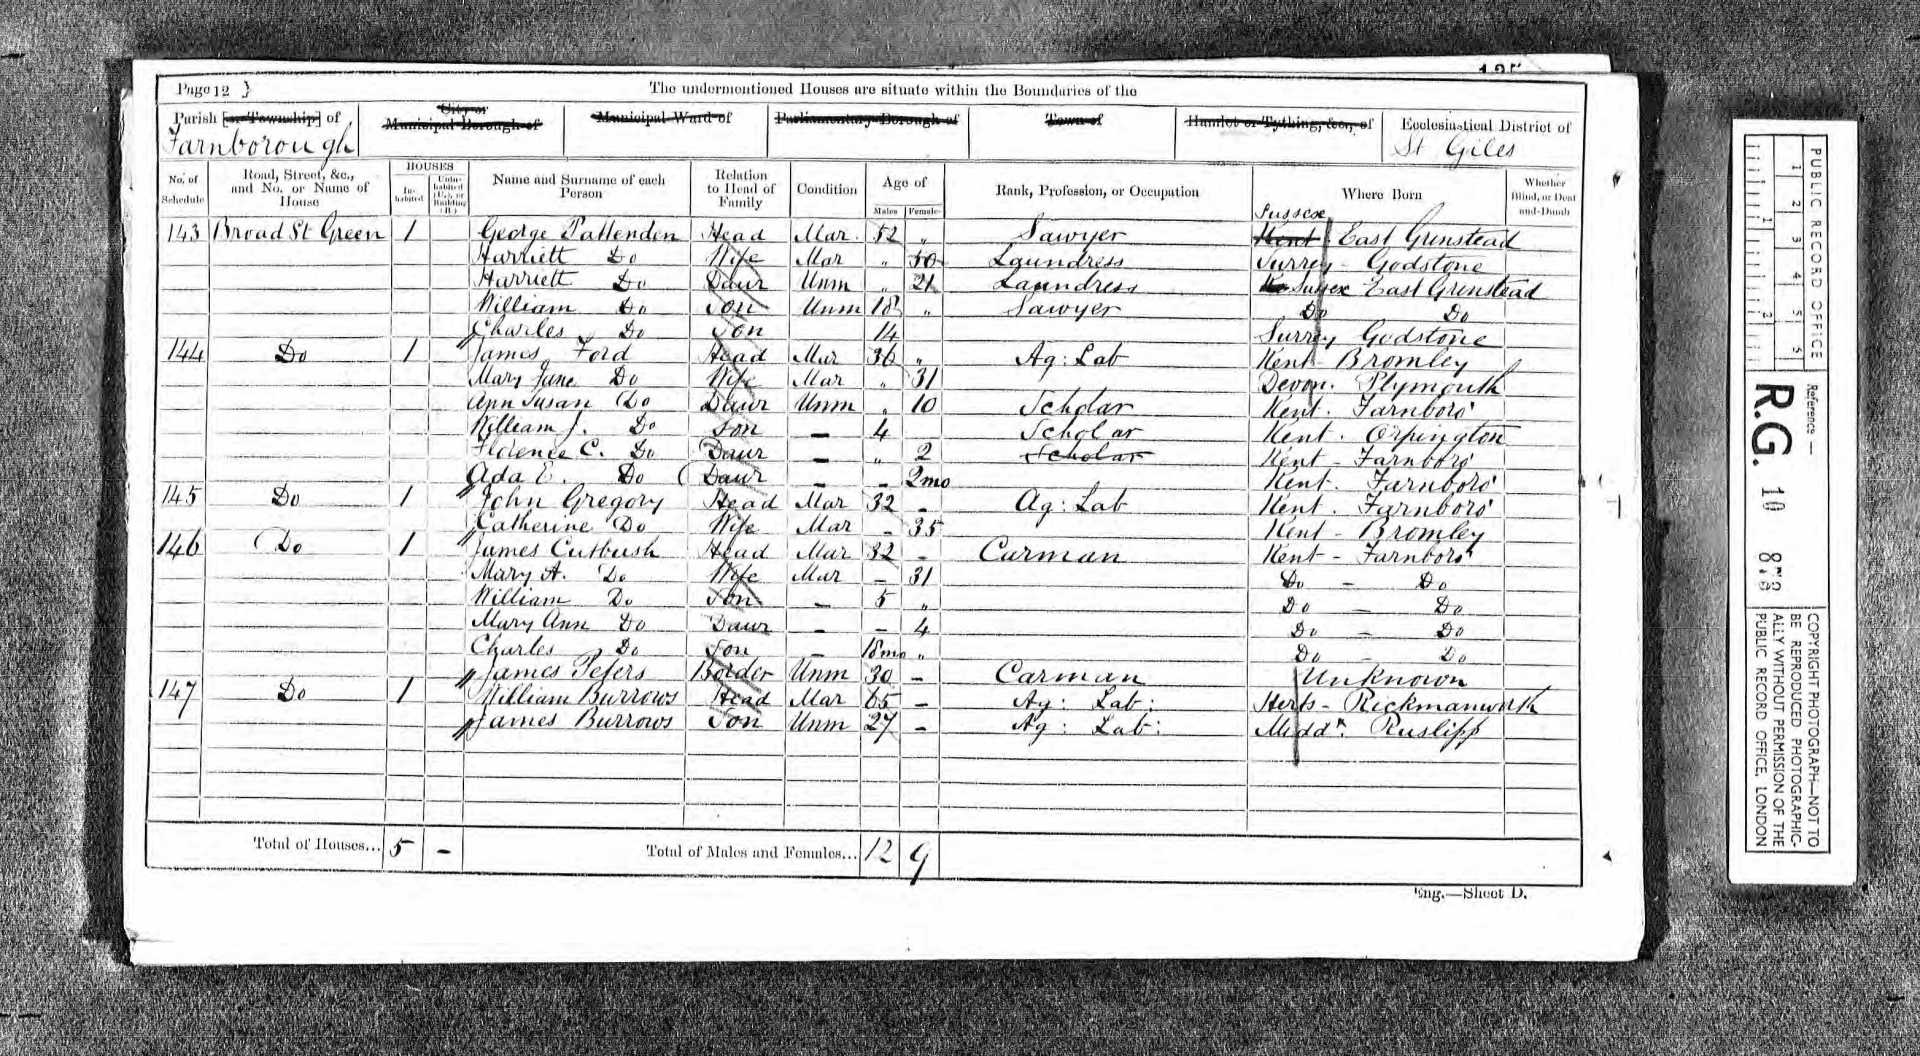 Page 12 }
The undermentioned Houses are situate within the Boundaries of the
Parish [or Township] of
Farnborough
City or
Municipal Borough of
Municipal Ward of
Parliamentary Borough of
Town of
Hamlet or Tything, &c., of
Ecclesiastical District of
St Giles
No. of Schedule
Road, Street, &c., and No. or Name of House
HOUSES
Inhabited
Uninhabited (U.), or Building (B.)
Name and Surname of each Person
Relation to Head of Family
Condition
Age of
Males
Females
Rank, Profession, or Occupation
Where Born
Whether Blind, or Deaf and-Dumb
143 Broad St Green 1 George Pattenden Head Mar. 52 " Sawyer Sussex Kent East Grinstead
Harriett Do Wife Mar " 50 Laundress Surrey - Godstone
Harriett Do Daur Unm " 21 Laundress Sussex East Grinstead
William Do Son Unm 18 " Sawyer Do Do
Charles Do Son 14 Surrey Godstone
144 Do 1 James Ford Head Mar 36 " Ag: Lab Kent - Bromley
Mary Jane Do Wife Mar " 31 Devon. Plymouth
Ann Susan Do Daur Unm " 10 Scholar Kent. Farnboro'
William J. Do Son - 4 Scholar Kent. Orpington
Florence C. Do Daur - " 2 Scholar Kent - Farnboro'
Ada E. Do Daur - - 2mo Kent. Farnboro'
145 Do 1 John Gregory Head Mar 32 - Ag: Lab Kent. Farnboro'
Catherine Do Wife Mar - 35 Kent - Bromley
146 Do 1 James Cutbush Head Mar 32 - Carman Kent - Farnboro'
Mary A. Do Wife Mar - 31 Do - Do
William Do Son - 5 " Do - Do
Mary Ann Do Daur - - 4 Do - Do
Charles Do Son - 18mo " Do - Do
James Peters Border Unm 30 - Carman Unknown
147 Do 1 William Burrows Head Mar 65 - Ag: Lab: Herts - Rickmanworth
James Burrows Son Unm 27 - Ag: Lab: Middx. Ruslipp
Total of Houses... 5 -
Total of Males and Females... 12 9
Eng.—Sheet D.
PUBLIC RECORD OFFICE
1 2 3 4 5 6
1 2
Reference —
R.G. 10 873
COPYRIGHT PHOTOGRAPH—NOT TO
BE REPRODUCED PHOTOGRAPHIC-
ALLY WITHOUT PERMISSION OF THE
PUBLIC RECORD OFFICE, LONDON